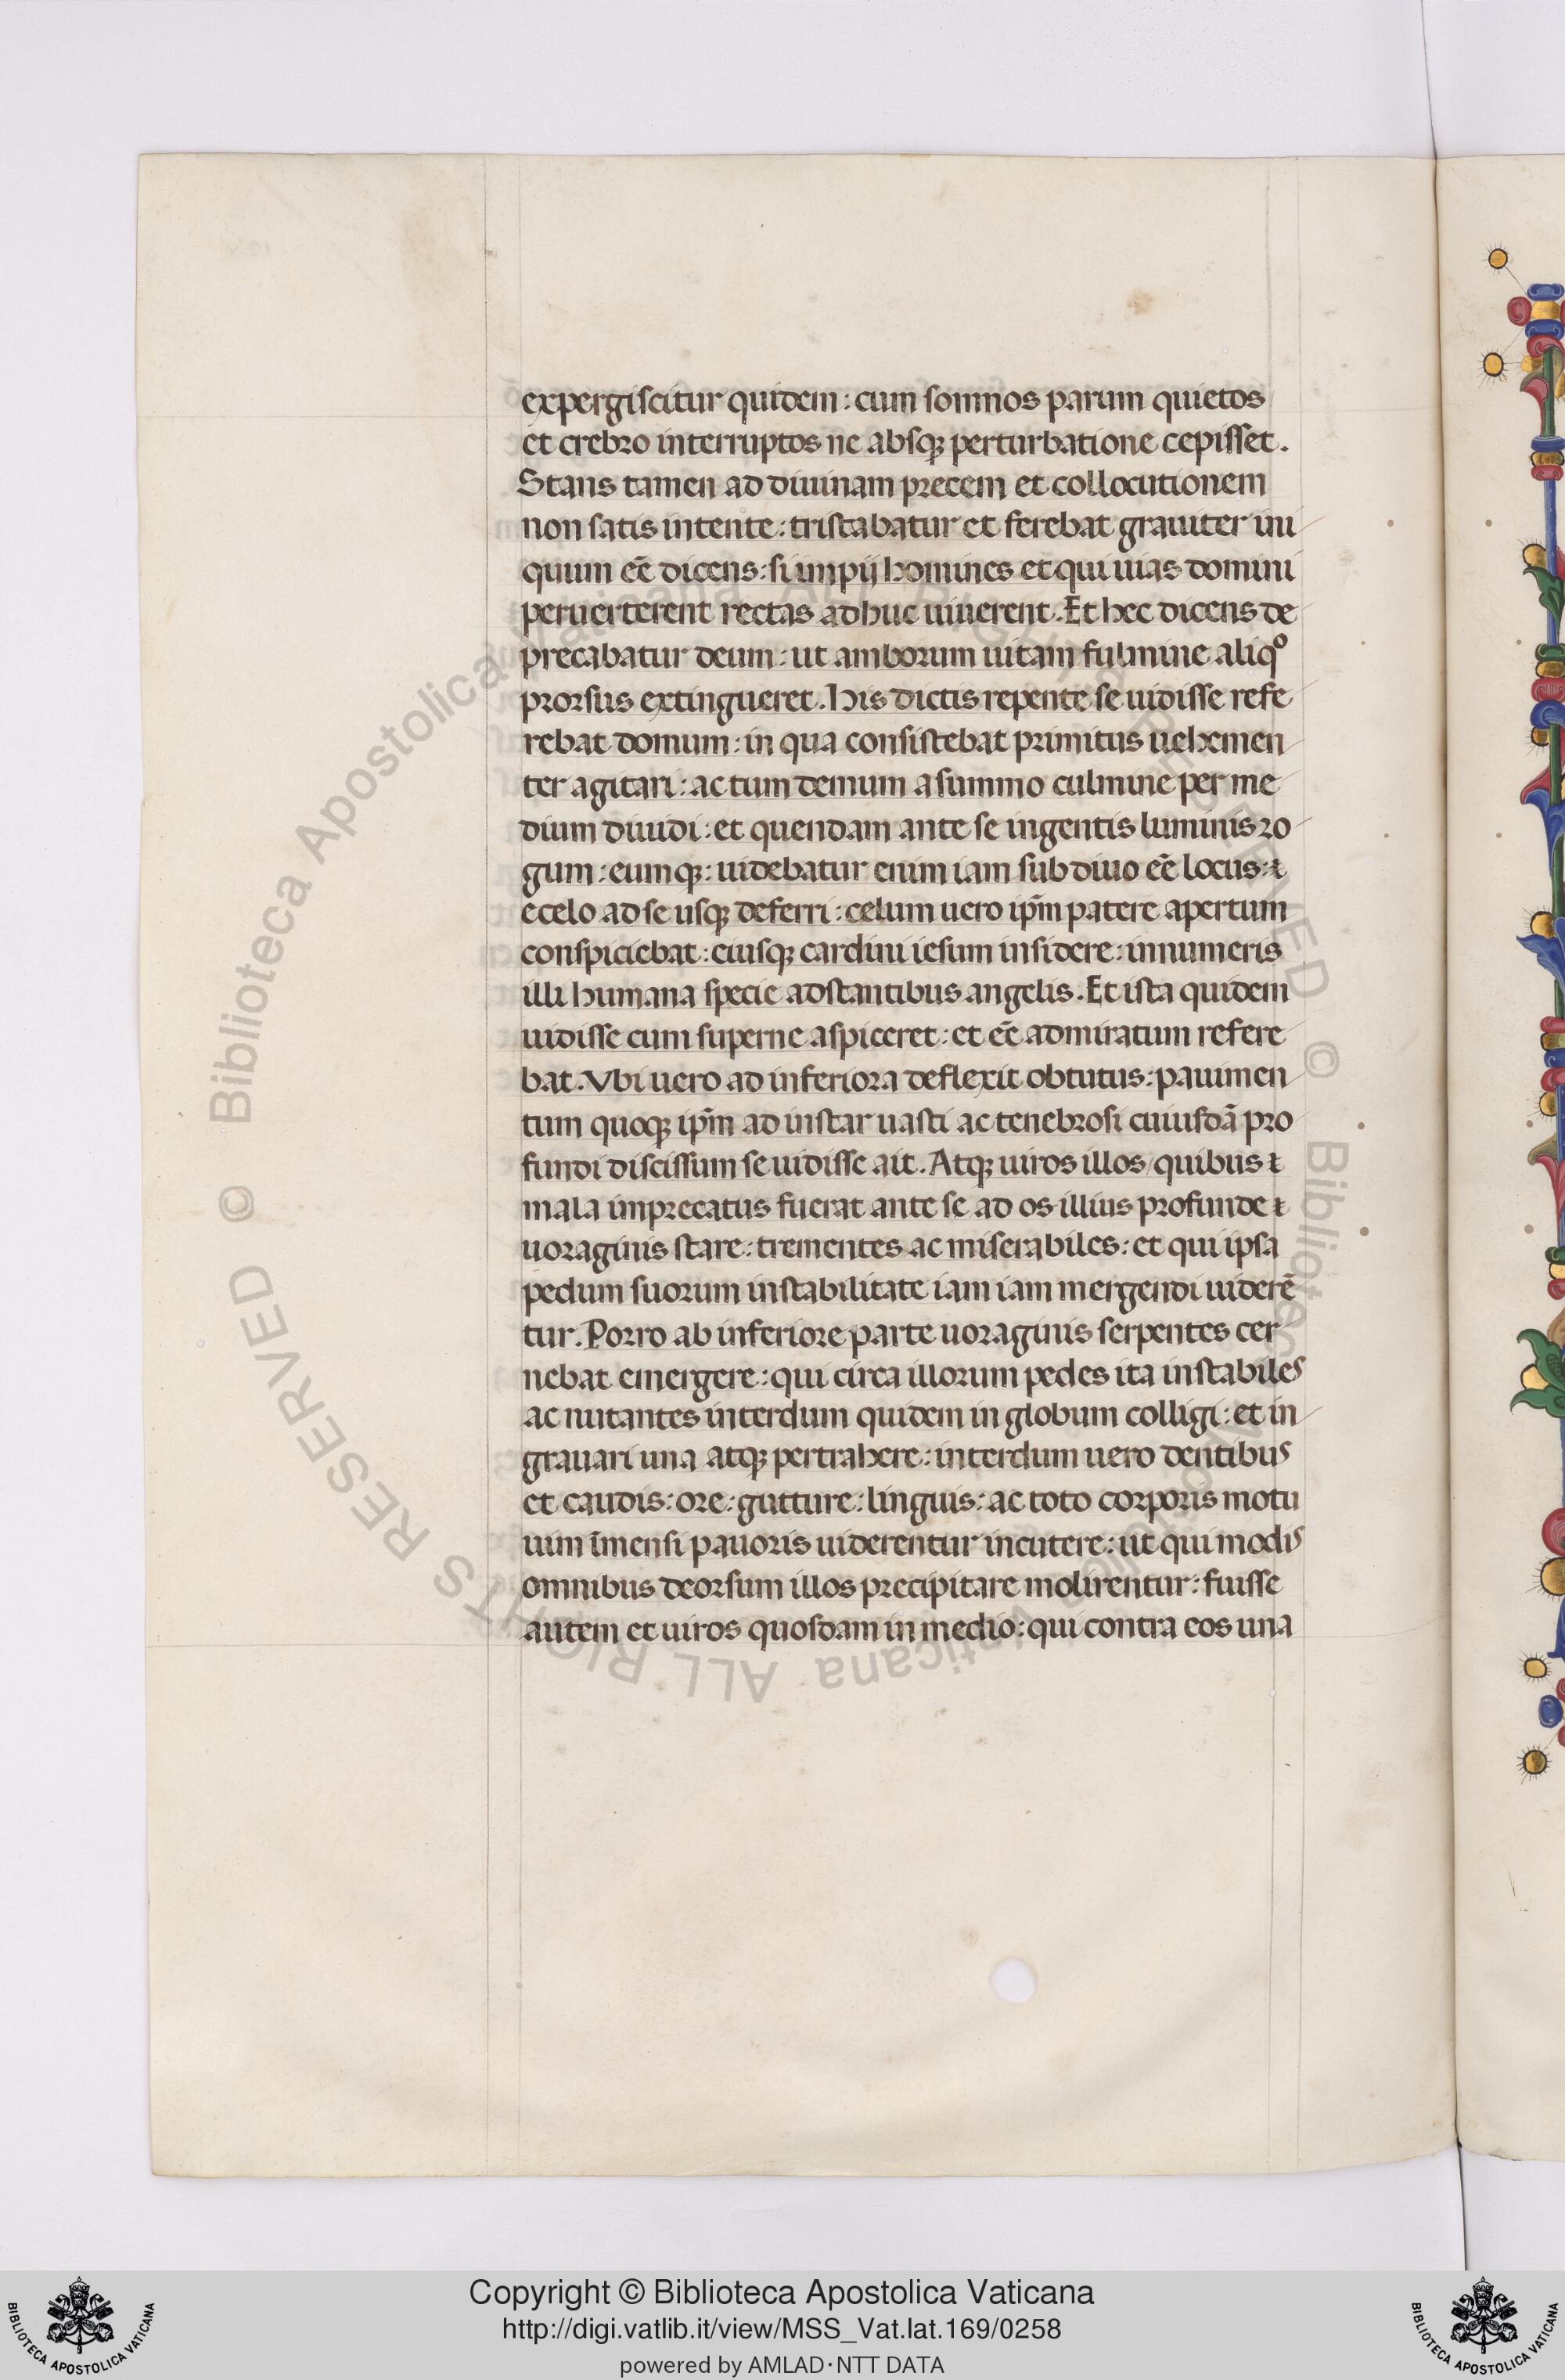 expergiscitur quidem: cum somnos parum quietos
et crebro interruptos ne absq; perturbatione cepisset.
Stans tamen ad diuinam precem et collocutionem
non satis intente: tristabatur et ferebat grauiter ini
quum eē dicens: si impij homines et qui uias domini
peruerterent rectas adhuc uiuerent. Et hec dicens de
precabatur deum: ut amborum uitam fulmine aliqº
prorsus extingueret. His dictis repente se uidisse refe
rebat domum: in qua consistebat primitus uehemen
ter agitari: ac tum demum a summo culmine per me
dium diuidi: et quendam ante se ingentis luminis ro
gum: eumq;: uidebatur enim iam sub diuo eē locus: ⁊
e celo ad se usq; deferri: celum uero ip̄m patere apertum
conspiciebat: eiusq; cardini iesum insidere: innumeris
illi humana specie adstantibus angelis. Et ista quidem
uidisse cum superne aspiceret: et eē admiratum refere
bat. Vbi uero ad inferiora deflexit obtutus: pauimen
tum quoq; ip̄m ad instar uasti ac tenebrosi cuiusdā pro
fundi discissum se uidisse ait. Atq; uiros illos/quibus ⁊
mala imprecatus fuerat ante se ad os illius profunde ⁊
uoraginis stare: trementes ac miserabiles: et qui ipsa
pedum suorum instabilitate iam iam mergendi uiderē
tur. Porro ab inferiore parte uoraginis serpentes cer
nebat emergere: qui circa illorum pedes ita instabiles
ac nutantes interdum quidem in globum colligi: et in
grauari una atq; pertrahere: interdum uero dentibus
et caudis: ore: gutture: linguis: ac toto corporis motu
uim īmensi pauoris uiderentur incutere: ut qui modis
omnibus deorsum illos precipitare molirentur: fuisse
autem et uiros quosdam in medio: qui contra eos una
© Biblioteca Apostolica Vaticana ALL RIGHTS RESERVED © Biblioteca Apostolica Vaticana ALL RIGHTS RESERVED
Copyright © Biblioteca Apostolica Vaticana
http://digi.vatlib.it/view/MSS_Vat.lat.169/0258
powered by AMLAD·NTT DATA
BIBLIOTECA APOSTOLICA VATICANA
BIBLIOTECA APOSTOLICA VATICANA